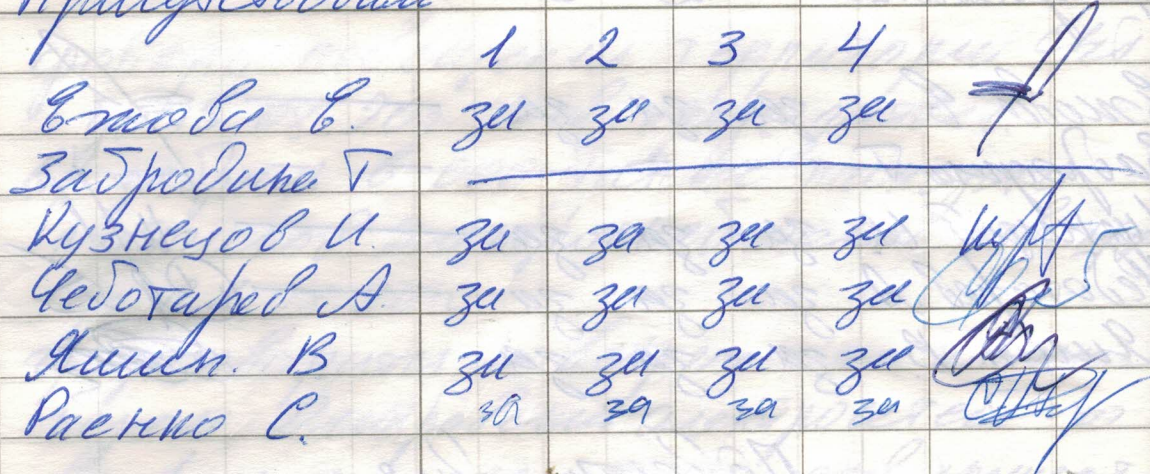 1 2 3 4
Ежова Е. за за за за
Забродина Т
Кузнецов И. за за за за
Чеботарев А. за за за за
Яшин. В за за за за
Раенко С. за за за за